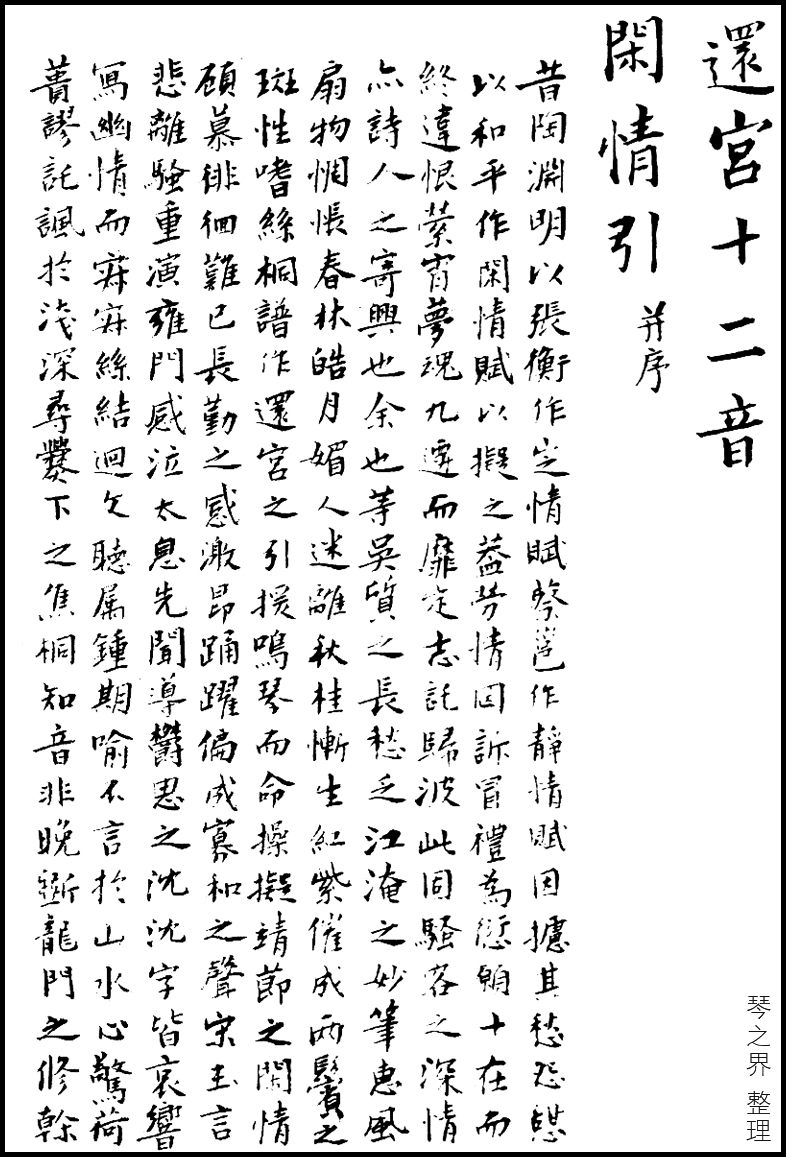 還宮十二音
閑情引 并序
昔陶淵明以張衡作定情賦蔡邕作靜情賦因攄其愁怨慰
以和平作閑情賦以擬之蓋勞情因訴冒禮為愆願十在而
終違恨縈宵夢魂九遷而靡定志託歸波此固騷客之深情
亦詩人之寄興也余也等吳質之長愁乏江淹之妙筆惠風
扇物惆悵春林皓月媚人迷離秋桂慚生紅紫催成兩鬢之
斑性嗜絲桐譜作還宮之引援鳴琴而命操擬靖節之閑情
顧慕徘徊難已長勤之感激昂踴躍偏成寡和之聲宋玉言
悲離騷重演雍門感泣太息先聞導鬱思之沈沈字皆哀響
寫幽情而絲結迴文聽屬鍾期喻不言於山水心驚荷
蕢謬託諷於淺深尋爨下之焦桐知音非晚斲龍門之修幹
琴之界 整理